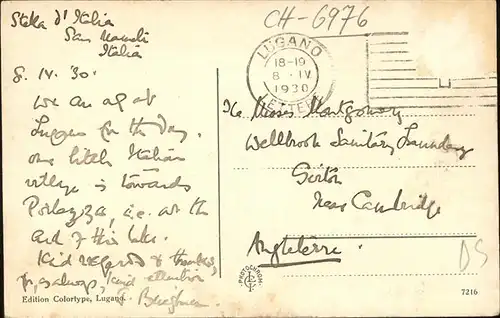 Stella d'Italia
San Mamete
Italia
8. IV. '30.
We are all at
Lugano for the day.
Our little Italian
village is towards
Porlezza, i.e. at the
end of this lake.
Kind regards & thanks,
for, as always, kind attention
Edition Colortype, Lugano.
CH-6976
LUGANO
18-19
8 · IV
1930
LETTERE
The Misses Montgomery
Wellbrook Sanitary Laundry
Girton
Near Cambridge
Angleterre.
PHOTOCHROM
DS
7216